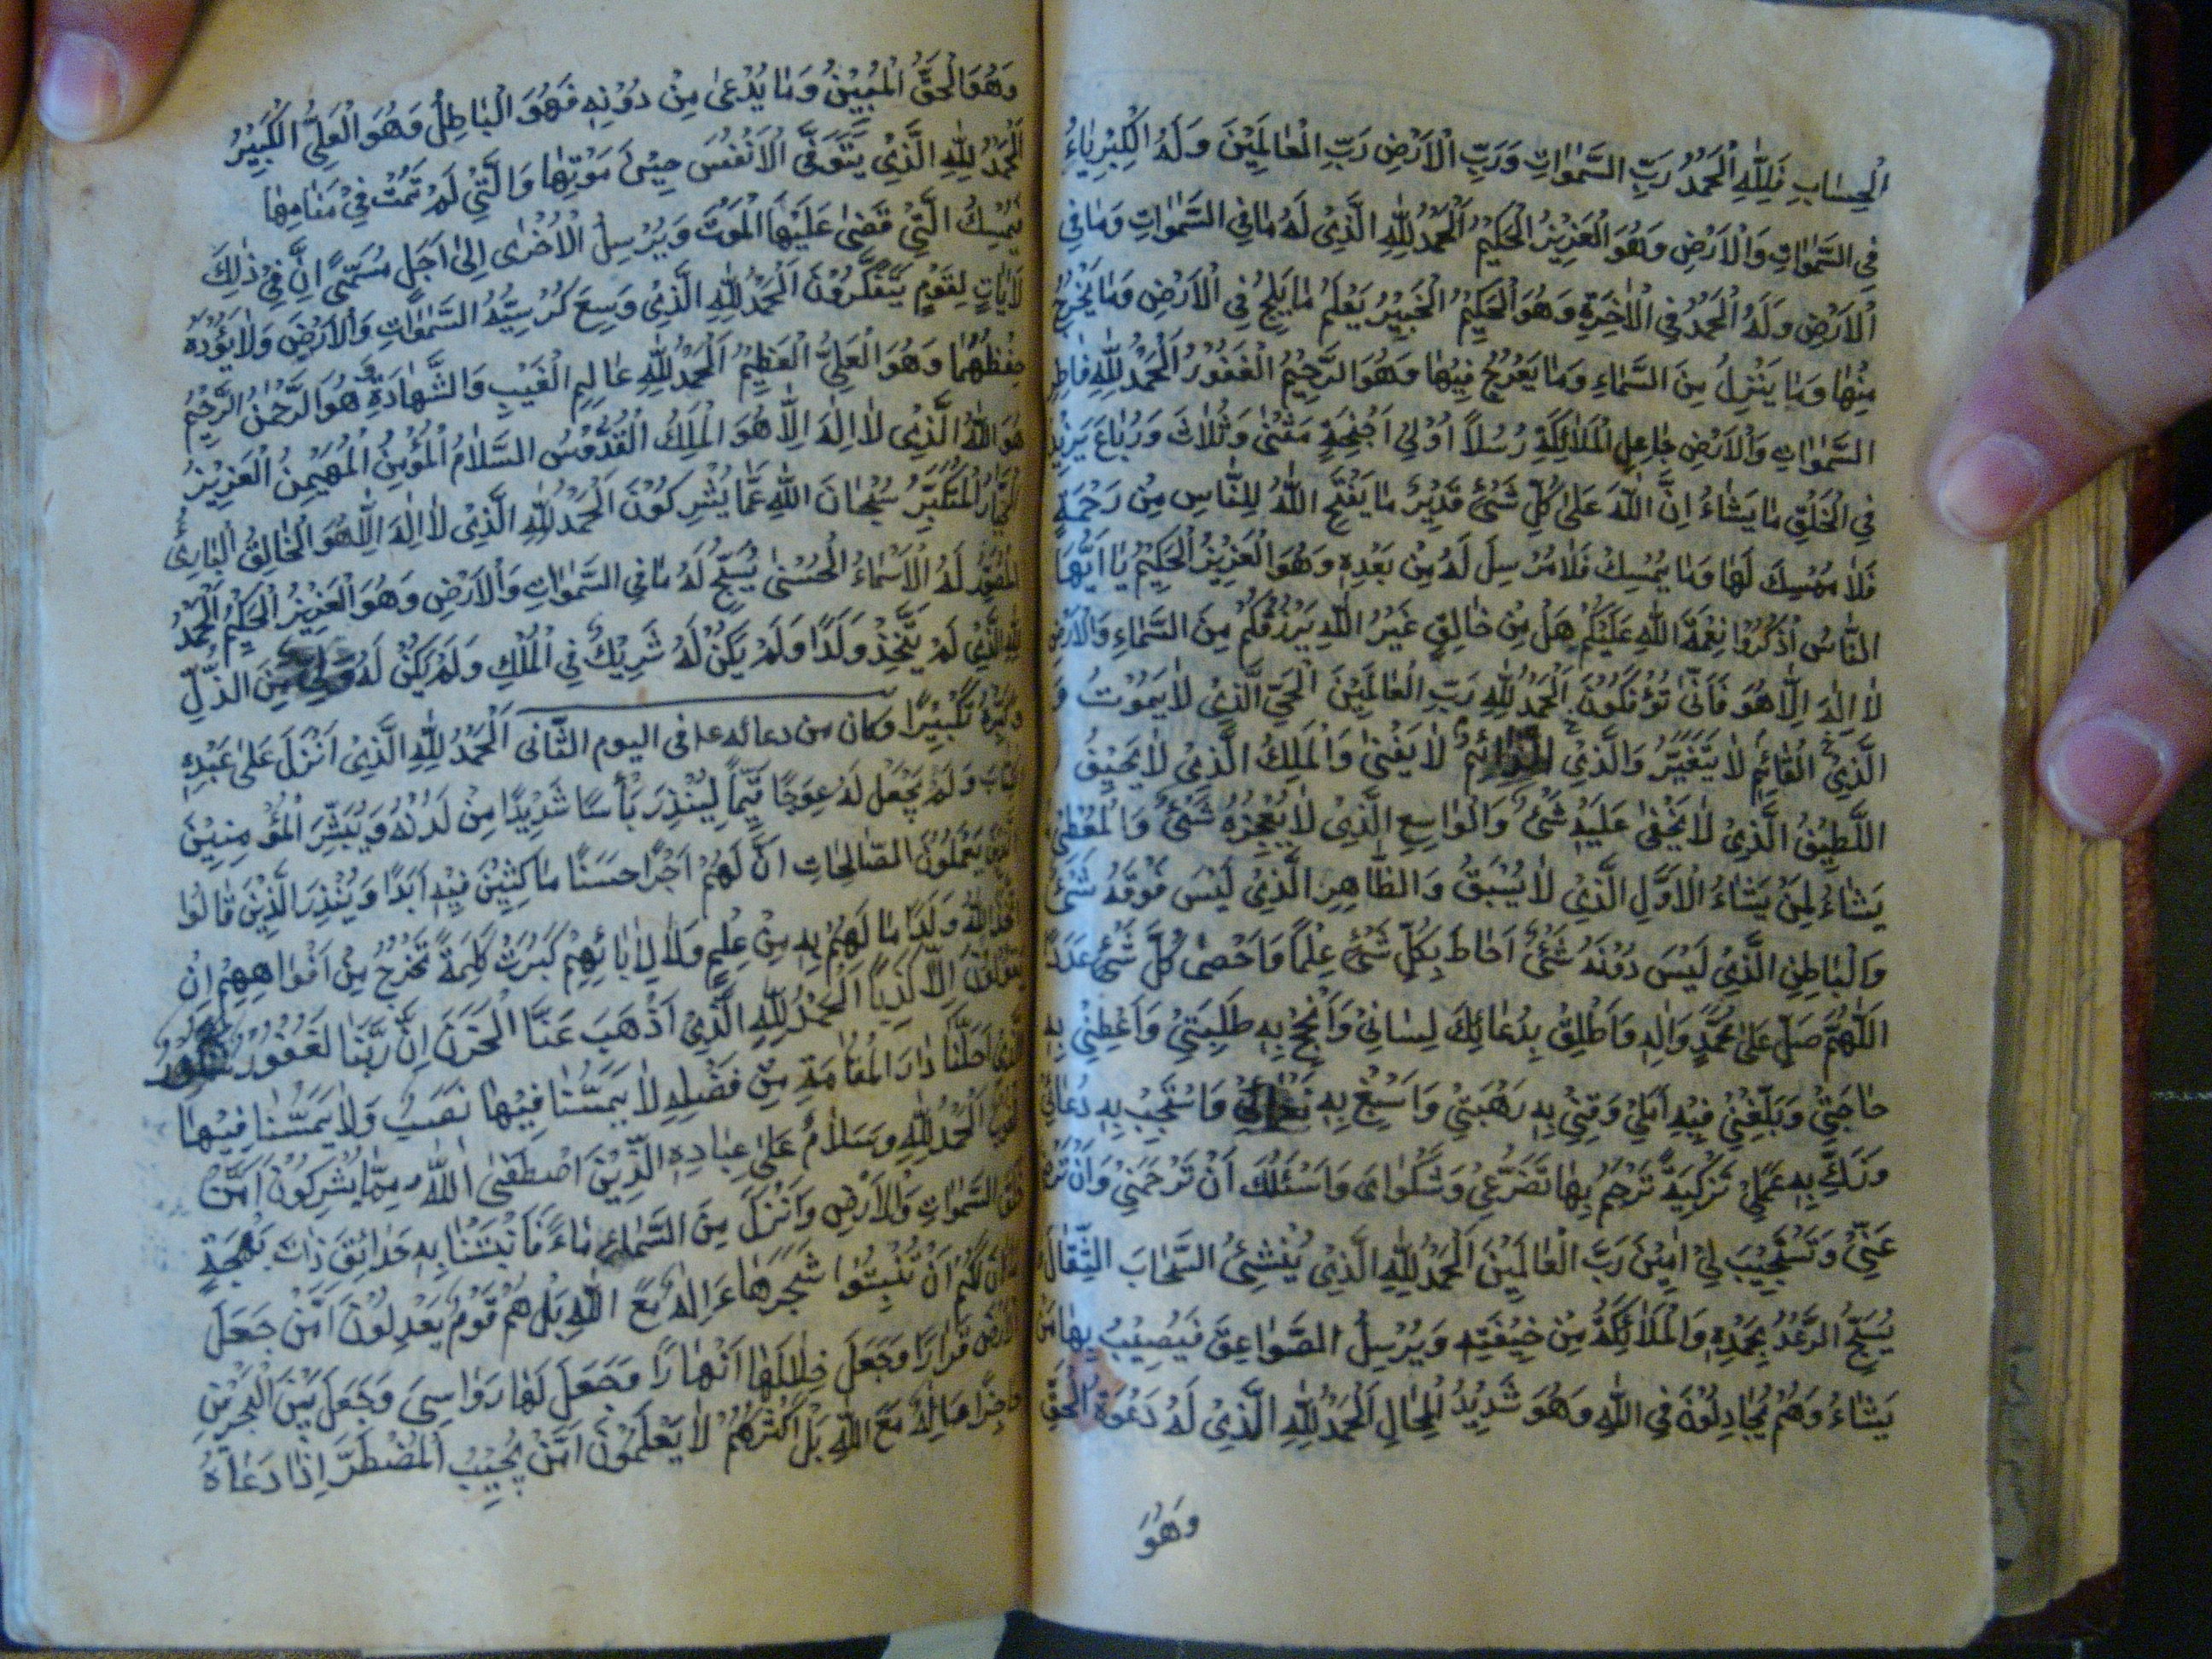 الْحِسٰابِ فَلِلّٰهِ الْحَمْدُ رَبِّ السَّمٰوٰاتِ وَرَبِّ الْاَرْضِ رَبِّ الْعٰالَمِيْنَ وَلَهُ الْكِبْرِيٰاءُ
فِي السَّمٰوٰاتِ وَالْاَرْضِ وَهُوَ الْعَزِيْزُ الْحَكِيْمُ اَلْحَمْدُ لِلّٰهِ الَّذِيْ لَهُ مٰا فِي السَّمٰوٰاتِ وَمٰا فِي
الْاَرْضِ وَلَهُ الْحَمْدُ فِي الْاٰخِرَةِ وَهُوَ الْحَكِيْمُ الْخَبِيْرُ يَعْلَمُ مٰا يَلِجُ فِي الْاَرْضِ وَمٰا يَخْرُجُ
مِنْهٰا وَمٰا يَنْزِلُ مِنَ السَّمٰاءِ وَمٰا يَعْرُجُ فِيْهٰا وَهُوَ الرَّحِيْمُ الْغَفُوْرُ اَلْحَمْدُ لِلّٰهِ فٰاطِرِ
السَّمٰوٰاتِ وَالْاَرْضِ جٰاعِلِ الْمَلٰائِكَةِ رُسُلاً اُوْلِيْ اَجْنِحَةٍ مَثْنٰى وَثُلٰاثَ وَرُبٰاعَ يَزِيْدُ
فِي الْخَلْقِ مٰا يَشٰاءُ اِنَّ اللّٰهَ عَلٰى كُلِّ شَيْءٍ قَدِيْرٌ مٰا يَفْتَحِ اللّٰهُ لِلنّٰاسِ مِنْ رَحْمَةٍ
فَلٰا مُمْسِكَ لَهٰا وَمٰا يُمْسِكْ فَلٰا مُرْسِلَ لَهُ مِنْ بَعْدِهِ وَهُوَ الْعَزِيْزُ الْحَكِيْمُ يٰا اَيُّهَا
النّٰاسُ اذْكُرُوْا نِعْمَةَ اللّٰهِ عَلَيْكُمْ هَلْ مِنْ خٰالِقٍ غَيْرُ اللّٰهِ يَرْزُقُكُمْ مِنَ السَّمٰاءِ وَالْاَرْضِ
لٰا اِلٰهَ اِلّٰا هُوَ فَاَنّٰى تُؤْفَكُوْنَ اَلْحَمْدُ لِلّٰهِ رَبِّ الْعٰالَمِيْنَ الْحَيِّ الَّذِيْ لٰا يَمُوْتُ وَ
الَّذِيْ الْقٰائِمِ لٰا يَتَغَيَّرُ وَالَّذِيْ الدّٰائِمِ لٰا يَفْنٰى وَالْمَلِكُ الَّذِيْ لٰا
اللَّطِيْفُ الَّذِيْ لٰا يَخْفٰى عَلَيْهِ شَيْءٌ وَالْوٰاسِعِ الَّذِيْ لٰا يُعْجِزُهُ شَيْءٌ وَالْمُعْطِيْ
يَشٰاءُ لِمَنْ يَشٰاءُ الْاَوَّلِ الَّذِيْ لٰا يُسْبَقُ وَالظّٰاهِرِ الَّذِيْ لَيْسَ فَوْقَهُ شَيْءٌ
وَالْبٰاطِنِ الَّذِيْ لَيْسَ دُوْنَهُ شَيْءٌ اَحٰاطَ بِكُلِّ شَيْءٍ عِلْمًا وَاَحْصٰى كُلَّ شَيْءٍ عَدَدًا
اَللّٰهُمَّ صَلِّ عَلٰى مُحَمَّدٍ وَاٰلِهِ وَاَطْلِقْ بِدُعٰائِكَ لِسٰانِيْ وَاَنْجِحْ بِهِ طَلِبَتِيْ وَاَعْطِنِيْ بِهِ
حٰاجَتِيْ وَبَلِّغْنِيْ فِيْهِ اَمَلِيْ وَقِنِيْ بِهِ رَهْبَتِيْ وَاَسْبِغْ بِهِ نَعْمٰائِيْ وَاسْتَجِبْ بِهِ دُعٰائِيْ
وَزَكِّ بِهِ عَمَلِيْ تَزْكِيَةً تَرْحَمُ بِهٰا تَضَرُّعِيْ وَشَكْوٰايَ وَاَسْئَلُكَ اَنْ تَرْحَمَنِيْ وَاَنْ تَرْضٰى
عَنِّيْ وَتَسْتَجِيْبَ لِيْ اٰمِيْنَ رَبَّ الْعٰالَمِيْنَ اَلْحَمْدُ لِلّٰهِ الَّذِيْ يُنْشِئُ السَّحٰابَ الثِّقٰالَ
يُسَبِّحُ الرَّعْدُ بِحَمْدِهِ وَالْمَلٰائِكَةُ مِنْ خِيْفَتِهِ وَيُرْسِلُ الصَّوٰاعِقَ فَيُصِيْبُ بِهٰا مَنْ
يَشٰاءُ وَهُمْ يُجٰادِلُوْنَ فِي اللّٰهِ وَهُوَ شَدِيْدُ الْمِحٰالِ اَلْحَمْدُ لِلّٰهِ الَّذِيْ لَهُ دَعْوَةُ الْحَقِّ
وَهُوَ
وَهُوَ الْحَقُّ الْمُبِيْنُ وَمٰا يُدْعٰى مِنْ دُوْنِهِ فَهُوَ الْبٰاطِلُ وَهُوَ الْعَلِيُّ الْكَبِيْرُ
اَلْحَمْدُ لِلّٰهِ الَّذِيْ يَتَوَفَّى الْاَنْفُسَ حِيْنَ مَوْتِهٰا وَالَّتِيْ لَمْ تَمُتْ فِيْ مَنٰامِهٰا
يُمْسِكُ الَّتِيْ قَضٰى عَلَيْهَا الْمَوْتَ وَيُرْسِلُ الْاُخْرٰى اِلٰى اَجَلٍ مُسَمًّى اِنَّ فِيْ ذٰلِكَ
لَاٰيٰاتٍ لِقَوْمٍ يَتَفَكَّرُوْنَ اَلْحَمْدُ لِلّٰهِ الَّذِيْ وَسِعَ كُرْسِيُّهُ السَّمٰوٰاتِ وَالْاَرْضَ وَلٰا يَؤُدُهُ
حِفْظُهُمٰا وَهُوَ الْعَلِيُّ الْعَظِيْمُ اَلْحَمْدُ لِلّٰهِ عٰالِمِ الْغَيْبِ وَالشَّهٰادَةِ هُوَ الرَّحْمٰنُ الرَّحِيْمُ
هُوَ اللّٰهُ الَّذِيْ لٰا اِلٰهَ اِلّٰا هُوَ الْمَلِكُ الْقُدُّوْسُ السَّلٰامُ الْمُؤْمِنُ الْمُهَيْمِنُ الْعَزِيْزُ
الْجَبّٰارُ الْمُتَكَبِّرُ سُبْحٰانَ اللّٰهِ عَمّٰا يُشْرِكُوْنَ اَلْحَمْدُ لِلّٰهِ الَّذِيْ لٰا اِلٰهَ اِلّٰا هُوَ الْخٰالِقُ الْبٰارِئُ
الْمُصَوِّرُ لَهُ الْاَسْمٰاءُ الْحُسْنٰى يُسَبِّحُ لَهُ مٰا فِي السَّمٰوٰاتِ وَالْاَرْضِ وَهُوَ الْعَزِيْزُ الْحَكِيْمُ اَلْحَمْدُ
لِلّٰهِ الَّذِيْ لَمْ يَتَّخِذْ وَلَدًا وَلَمْ يَكُنْ لَهُ شَرِيْكٌ فِي الْمُلْكِ وَلَمْ يَكُنْ لَهُ وَلِيٌّ مِنَ الذُّلِّ
وَكَبِّرْهُ تَكْبِيْرًا وكان من دعائه ع فى اليوم الثّانى اَلْحَمْدُ لِلّٰهِ الَّذِيْ اَنْزَلَ عَلٰى عَبْدِهِ
الْكِتٰابَ وَلَمْ يَجْعَلْ لَهُ عِوَجًا قَيِّمًا لِيُنْذِرَ بَأْسًا شَدِيْدًا مِنْ لَدُنْهُ وَيُبَشِّرَ الْمُؤْمِنِيْنَ
الَّذِيْنَ يَعْمَلُوْنَ الصّٰالِحٰاتِ اَنَّ لَهُمْ اَجْرًا حَسَنًا مٰاكِثِيْنَ فِيْهِ اَبَدًا وَيُنْذِرَ الَّذِيْنَ قٰالُوا
اتَّخَذَ اللّٰهُ وَلَدًا مٰا لَهُمْ بِهِ مِنْ عِلْمٍ وَلٰا لِاٰبٰائِهِمْ كَبُرَتْ كَلِمَةً تَخْرُجُ مِنْ اَفْوٰاهِهِمْ اِنْ
يَقُوْلُوْنَ اِلّٰا كَذِبًا اَلْحَمْدُ لِلّٰهِ الَّذِيْ اَذْهَبَ عَنَّا الْحَزَنَ اِنَّ رَبَّنٰا لَغَفُوْرٌ شَكُوْرٌ
الَّذِيْ اَحَلَّنٰا دٰارَ الْمُقٰامَةِ مِنْ فَضْلِهِ لٰا يَمَسُّنٰا فِيْهٰا نَصَبٌ وَلٰا يَمَسُّنٰا فِيْهٰا
لُغُوْبٌ اَلْحَمْدُ لِلّٰهِ وَسَلٰامٌ عَلٰى عِبٰادِهِ الَّذِيْنَ اصْطَفٰى اَللّٰهُ مِمّٰا يُشْرِكُوْنَ اَمَّنْ
خَلَقَ السَّمٰوٰاتِ وَالْاَرْضَ وَاَنْزَلَ مِنَ السَّمٰاءِ مٰاءً فَاَنْبَتْنٰا بِهِ حَدٰائِقَ ذٰاتَ بَهْجَةٍ
مٰا كٰانَ لَكُمْ اَنْ تُنْبِتُوْا شَجَرَهٰا ءَاِلٰهٌ مَعَ اللّٰهِ بَلْ هُمْ قَوْمٌ يَعْدِلُوْنَ اَمَّنْ جَعَلَ
الْاَرْضَ قَرٰارًا وَجَعَلَ خِلٰالَهٰا اَنْهٰارًا وَجَعَلَ لَهٰا رَوٰاسِيَ وَجَعَلَ بَيْنَ الْبَحْرَيْنِ
حٰاجِزًا ءَاِلٰهٌ مَعَ اللّٰهِ بَلْ اَكْثَرُهُمْ لٰا يَعْلَمُوْنَ اَمَّنْ يُجِيْبُ الْمُضْطَرَّ اِذٰا دَعٰاهُ